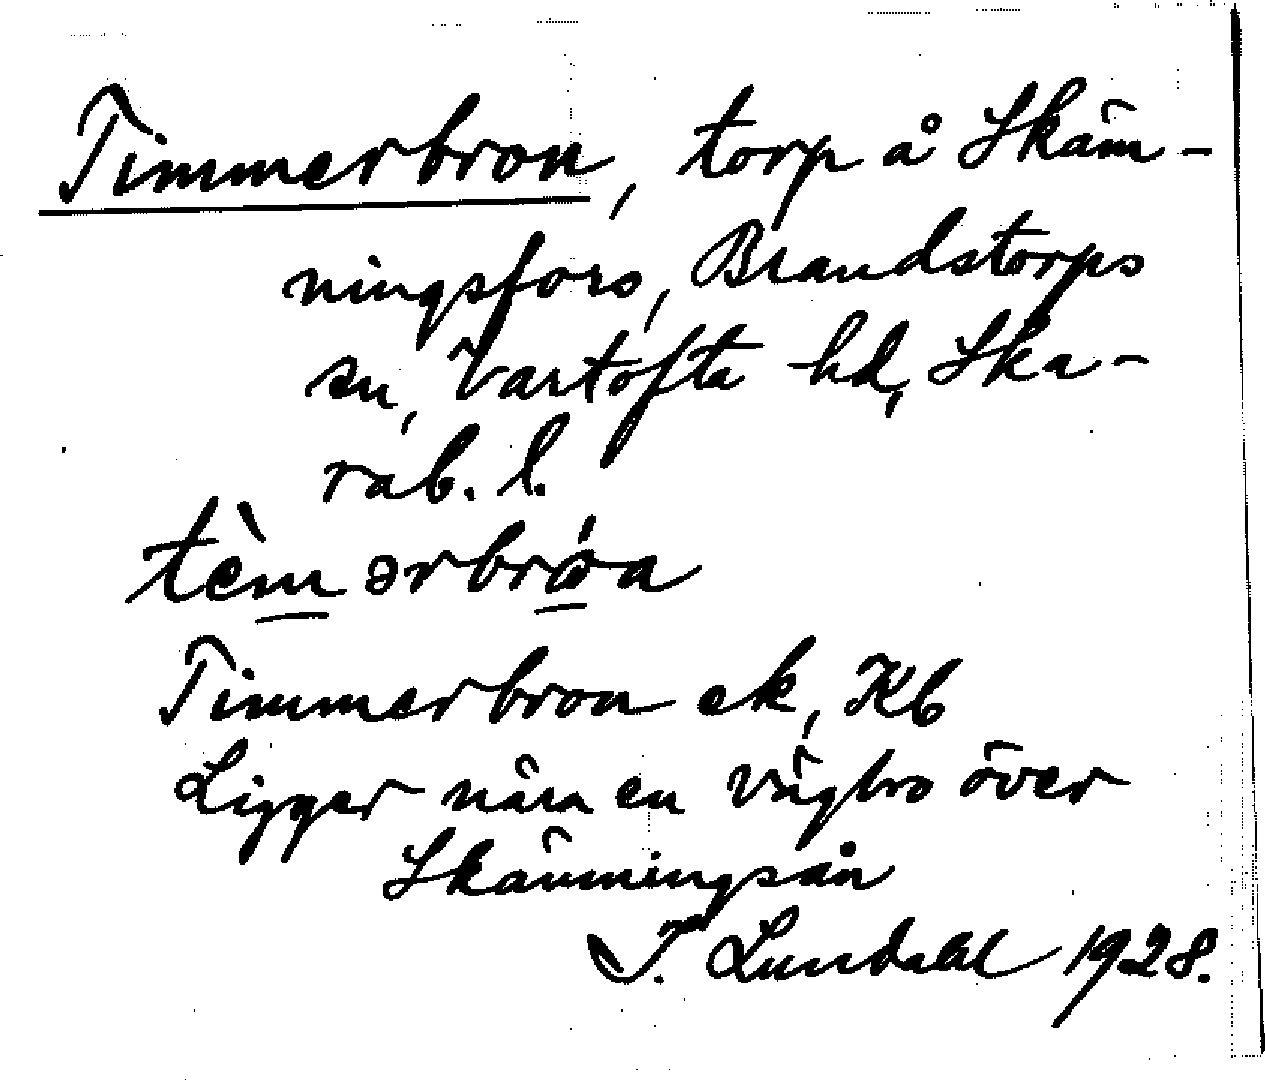 Timmerbron, torp å Skäm-
ningsfors, Brandstorps
sn, Vartofta hd, Ska-
rab. l.
tèmərbrǿa
Timmerbron ek, Kb
Ligger nära en vägbro över
Skämningsån
I. Lundahl 1928.